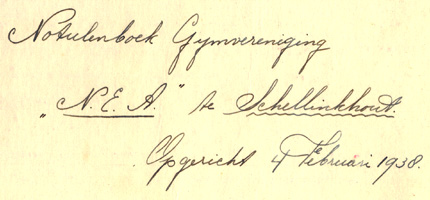 Notulenboek Gymvereniging
„N.E.A." te Schellinkhout.
Opgericht 4 Februari 1938.